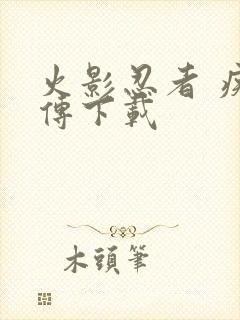 火影忍者 疾
傳下載
木頭筆